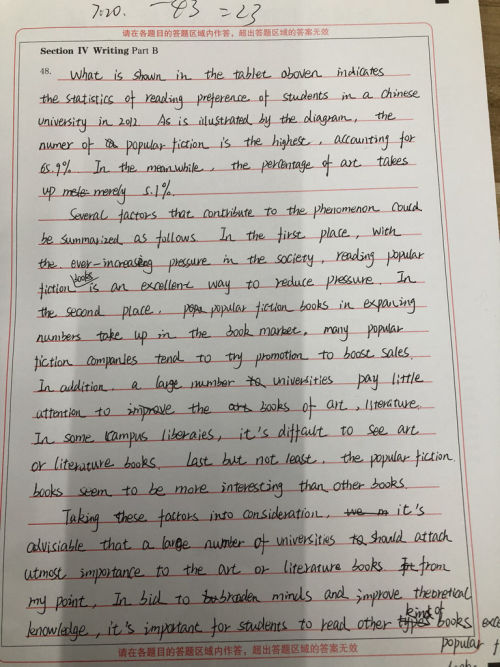 7:20. -83 = 23
请在各题目的答题区域内作答，超出答题区域的答案无效
Section IV Writing Part B
48. What is shown in the tablet aboven indicates
the statistics of reading preference of students in a chinese
university in 2012. As is illustrated by the diagram, the
numer of popular fiction is the highest, accounting for
65.9%. In the meanwhile, the percentage of art takes
up merely 5.1%.
Several factors that contribute to the phenomenon could
be summarized as follows. In the first place, with
the ever-increasing pressure in the society, reading popular
fiction books is an excellent way to reduce pressure. In
the second place, popular fiction books in expaning
numbers take up in the book market, many popular
fiction companies tend to try promotion to boost sales.
In addition, a large number universities pay little
attention to improve the books of art, literature.
In some campus liberaies, it's diffcult to see art
or literature books. Last but not least, the popular fiction
books seem to be more interesting than other books.
Taking these factors into consideration, it's
advisiable that a large number of universities should attach
utmost importance to the art or literature books from
my point, In bid to braden minds and improve theoretical
knowledge, it's important for students to read other kind of books
popular
请在各题目的答题区域内作答，超出答题区域的答案无效